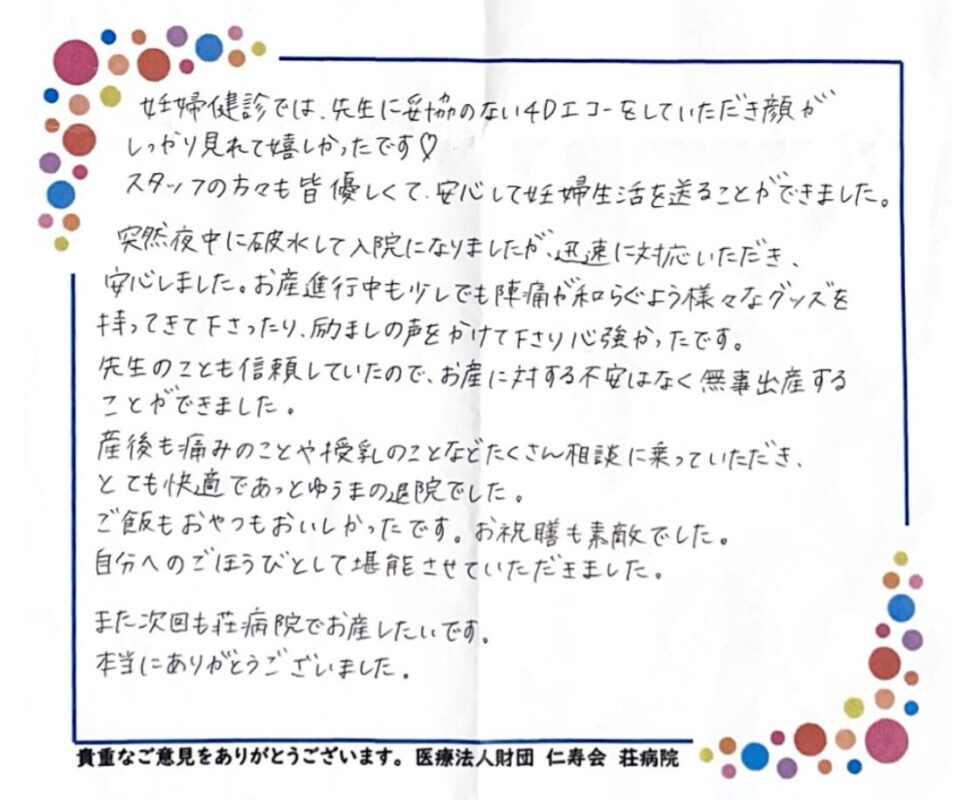 妊婦健診では、先生に妥協のない4Dエコーをしていただき顔が
しっかり見れて嬉しかったです♡
スタッフの方々も皆優しくて、安心して妊婦生活を送ることができました。
突然夜中に破水して入院になりましたが、迅速に対応いただき、
安心しました。お産進行中も少しでも陣痛が和らぐよう様々なグッズを
持ってきて下さったり、励ましの声をかけて下さり心強かったです。
先生のことも信頼していたので、お産に対する不安はなく無事出産する
ことができました。
産後も痛みのことや授乳のことなどたくさん相談に乗っていただき、
とても快適であっとゆうまの退院でした。
ご飯もおやつもおいしかったです。お祝膳も素敵でした。
自分へのごほうびとして堪能させていただきました。
また次回も荘病院でお産したいです。
本当にありがとうございました。
貴重なご意見をありがとうございます。医療法人財団 仁寿会 荘病院